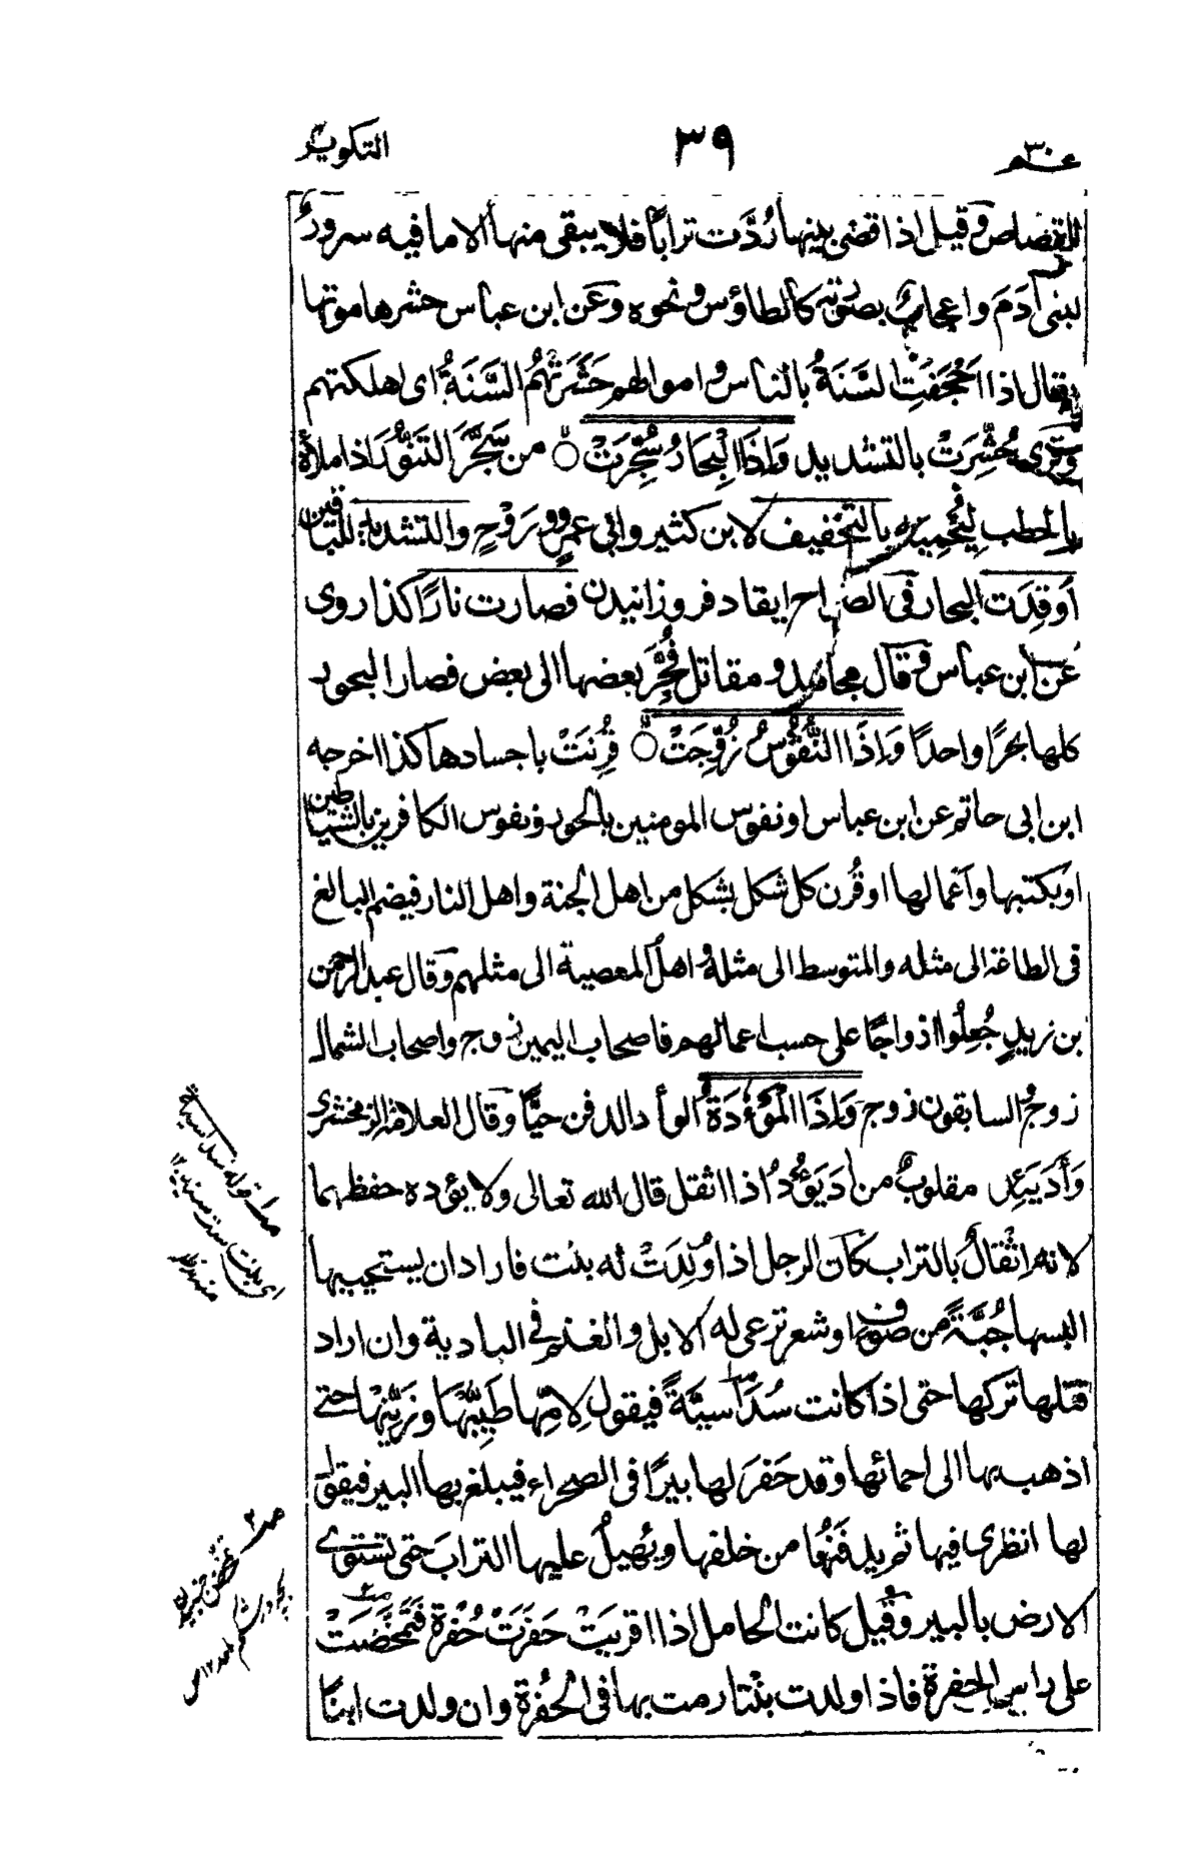 عم ٣٠
٣٩
التكوير
للقصاص وقيل اذا قضى بينها رُدَّت ترابًا فلا يبقى منها الا ما فيه سرورٌ
لبنى آدَمَ واعجابٌ بصوته كالطاؤس ونحوه وعَن ابن عباس حشرها موتها
يقال اذا اَحْجَفَتِ السَّنَةُ بالناس واموالهم حَشَرَتْهُم السَّنَةُ اى اهلكتهم
وقرئ حُشِّرَتْ بالتشديد وَاِذَا الْبِحَارُ سُجِّرَتْ ○ من سَجَّرَ التَنُّوْرَ اذا ملأه
بالحطب لِيُحْمِيَه بالتخفيف لابن كثير وابى عمرٍو ورَوْحٍ والتشديد للباقين
اَوقِدَت البحار فى الصراح ايقاد فروزانيدن فصارت نارًا كذا روى
عَن ابن عباس وقال مجاهد ومقاتل فُجِّرَ بعضها الى بعض فصار البحور
كلها بحرًا واحدًا وَاِذَا النُّفُوْسُ زُوِّجَتْ ○ قُرِنَتْ باجسادها كذا اخرجه
ابن ابى حاتم عن ابن عباس او نفوس المومنين بالحور ونفوس الكافرين بالشياطين
او بكتبها واَعْمالها او قُرن كل شكل بشكل من اهل الجنة واهل النار فيضم البالغ
فى الطاعة الى مثله والمتوسط الى مثله واهل المعصية الى مثلهم وقال عبد الرحمن
بن زيدٍ جُعِلُوا ازواجًا على حسب اعمالهم فاصحاب اليمين زوج واصحاب الشمال
زوج والسابقون زوج وَاِذَا الْمَوْءٗدَةُ الوأد الدفن حيًّا وقال العلامة الزمخشرى
وَأَدَ يَئِدُ مقلوبٌ من اٰدَ يَؤُدُ اذا اثقل قال الله تعالى ولا يؤده حفظهما
لانه اِثْقالٌ بالتراب كان الرجل اذا وُلِدَتْ له بنت فاراد ان يستحييها
البسها جُبَّةً من صوفٍ او شعر ترعى له الابل والغنم فى البادية وان اراد
قتلها تركها حتى اذا كانت سُدَاسيَّةً فيقول لِامّها طَيِّبِيْهَا وزَيِّنِيْها حتى
اذهب بها الى احمائها وقد حَفَرَ لها بيرًا فى الصحراء فيبلغ بها البير فيقول
لها انظرى فيها ثم يدفَعُها من خلفها ويُهيلُ عليها الترابَ حتى تَسْتَوِى
الارض بالبير وقيل كانت الحامل اذا اقربتْ حَفَرَتْ حُفْرة فَتَمَخَّضَتْ
على راس الحفرة فاذا ولدت بنتا رمت بها فى الحُفْرة وان ولدت ابنًا